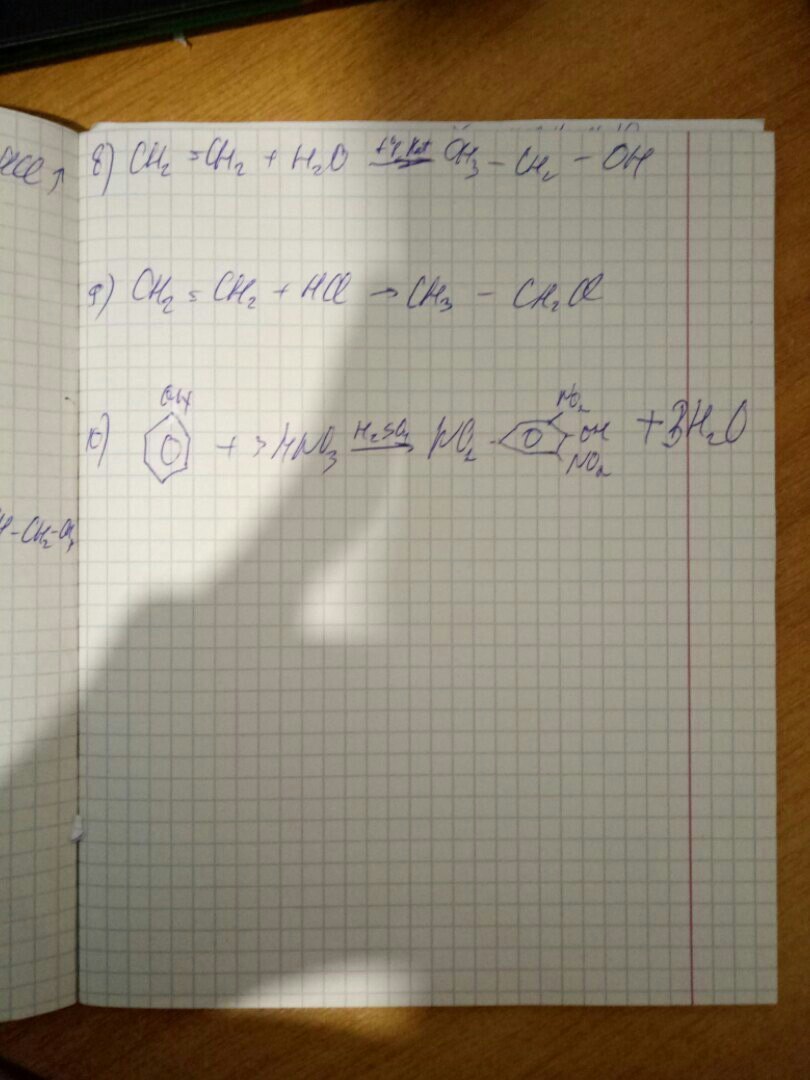 8) CH₂ = CH₂ + H₂O t°, kat CH₃ – CH₂ – OH
9) CH₂ = CH₂ + HCl → CH₃ – CH₂Cl
10) OH + 3HNO₃ H₂SO₄ NO₂ NO₂ OH NO₂ + 3H₂O
–CH₂–CH₃